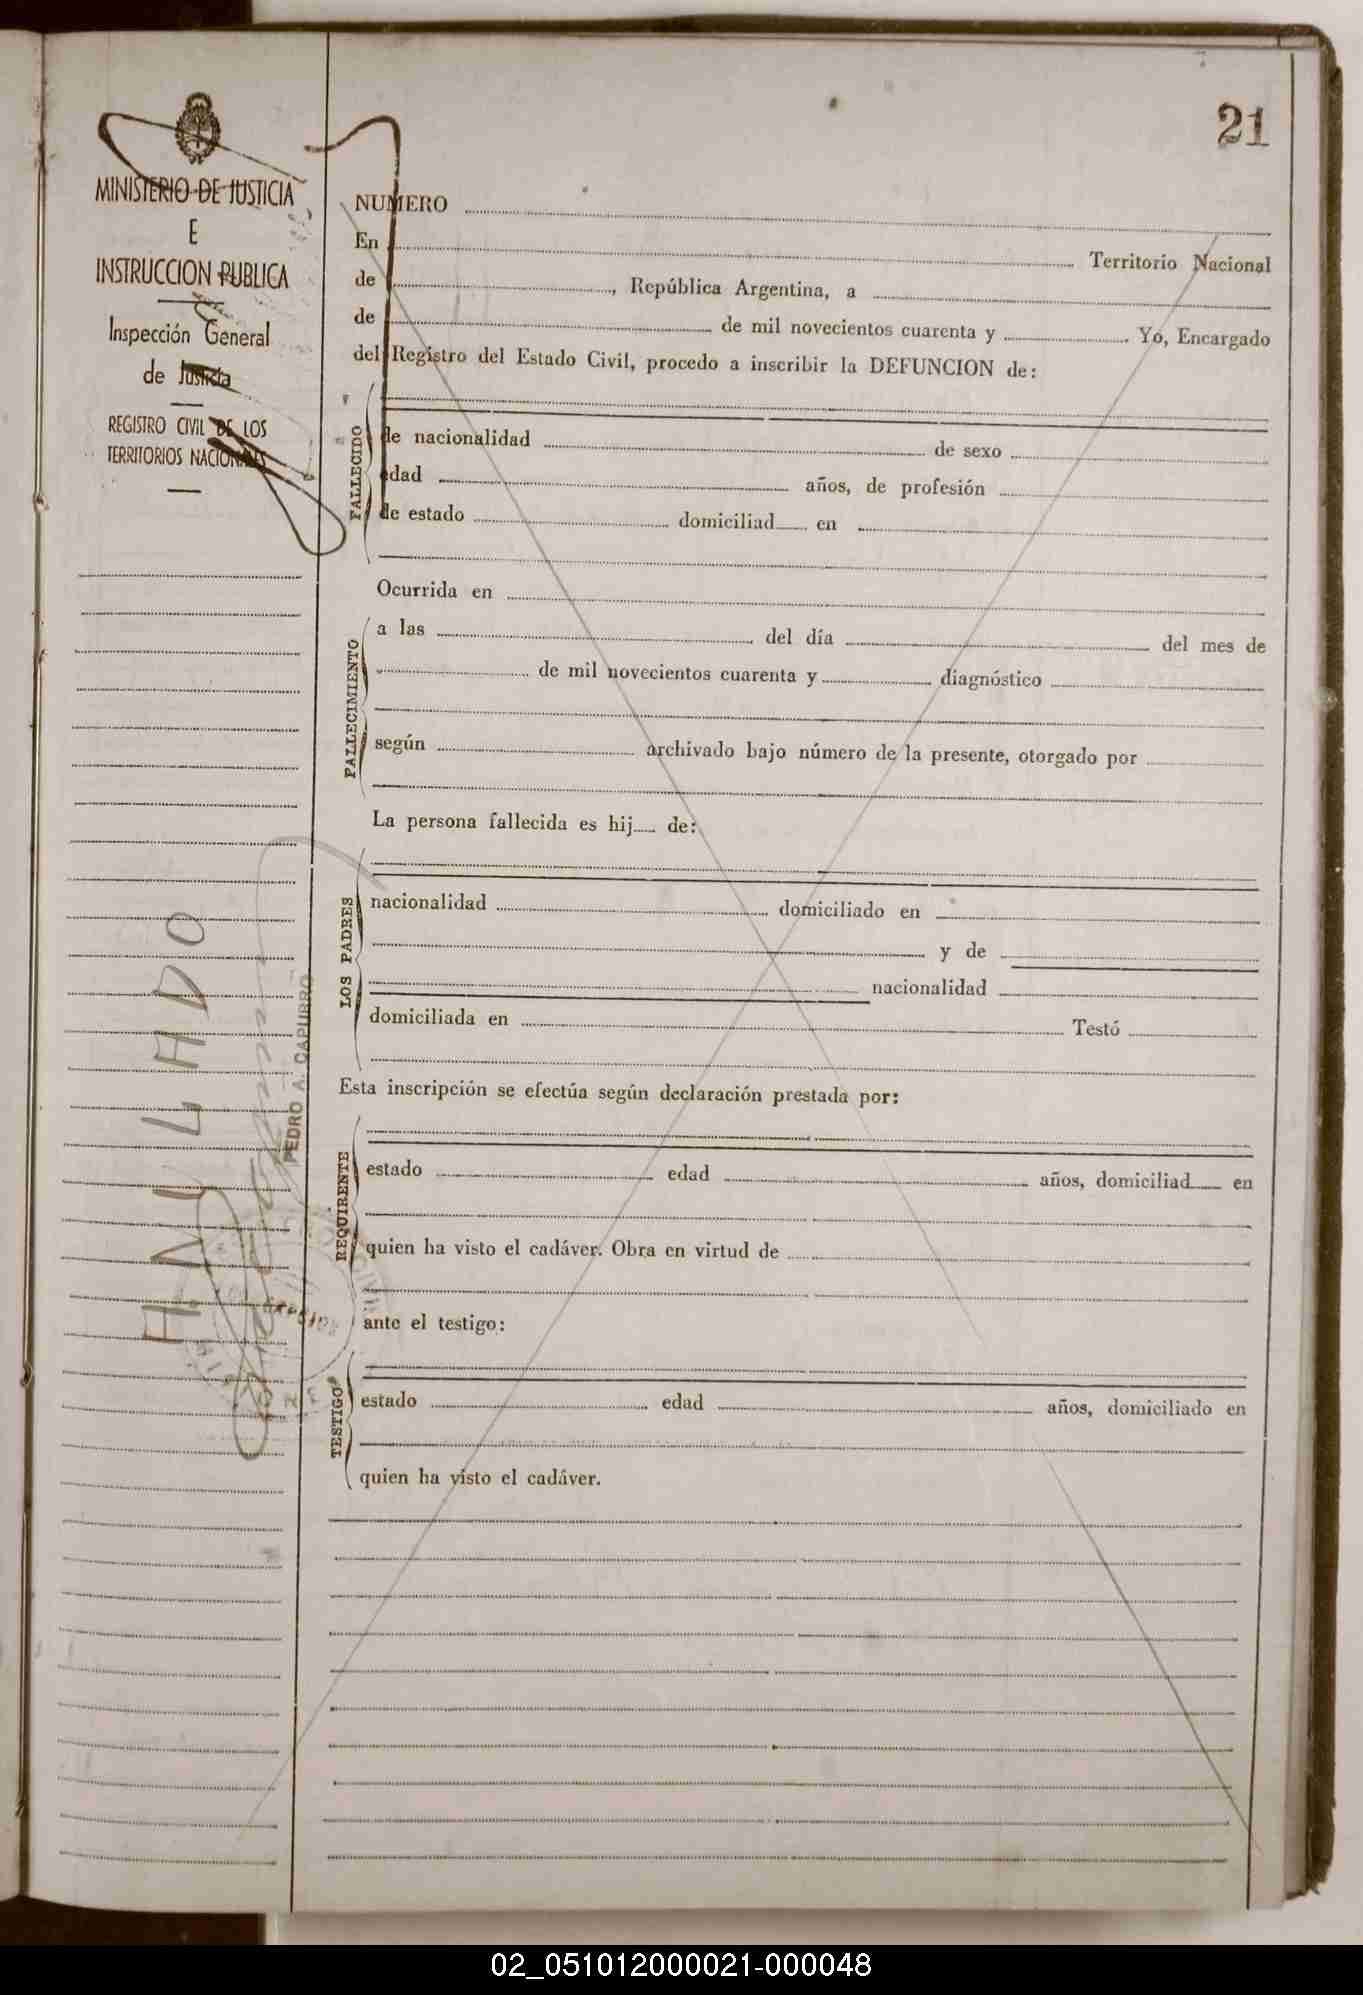 21
MINISTERIO DE JUSTICIA
E
INSTRUCCION PUBLICA
Inspección General
de Justicia
REGISTRO CIVIL DE LOS
TERRITORIOS NACIONALES
NUMERO
En Territorio Nacional
de , República Argentina, a
de de mil novecientos cuarenta y . Yo, Encargado
del Registro del Estado Civil, procedo a inscribir la DEFUNCION de:
FALLECIDO
de nacionalidad de sexo
edad años, de profesión
de estado domiciliad en
Ocurrida en
FALLECIMIENTO
a las del día del mes de
de mil novecientos cuarenta y diagnóstico
según archivado bajo número de la presente, otorgado por
La persona fallecida es hij de:
LOS PADRES
nacionalidad domiciliado en
y de
nacionalidad
domiciliada en Testó
Esta inscripción se efectúa según declaración prestada por:
REQUIRENTE
estado edad años, domiciliad en
quien ha visto el cadáver. Obra en virtud de
ante el testigo:
TESTIGO
estado edad años, domiciliado en
quien ha visto el cadáver.
ANULADO
PEDRO A. CAPURRO
02_051012000021-000048